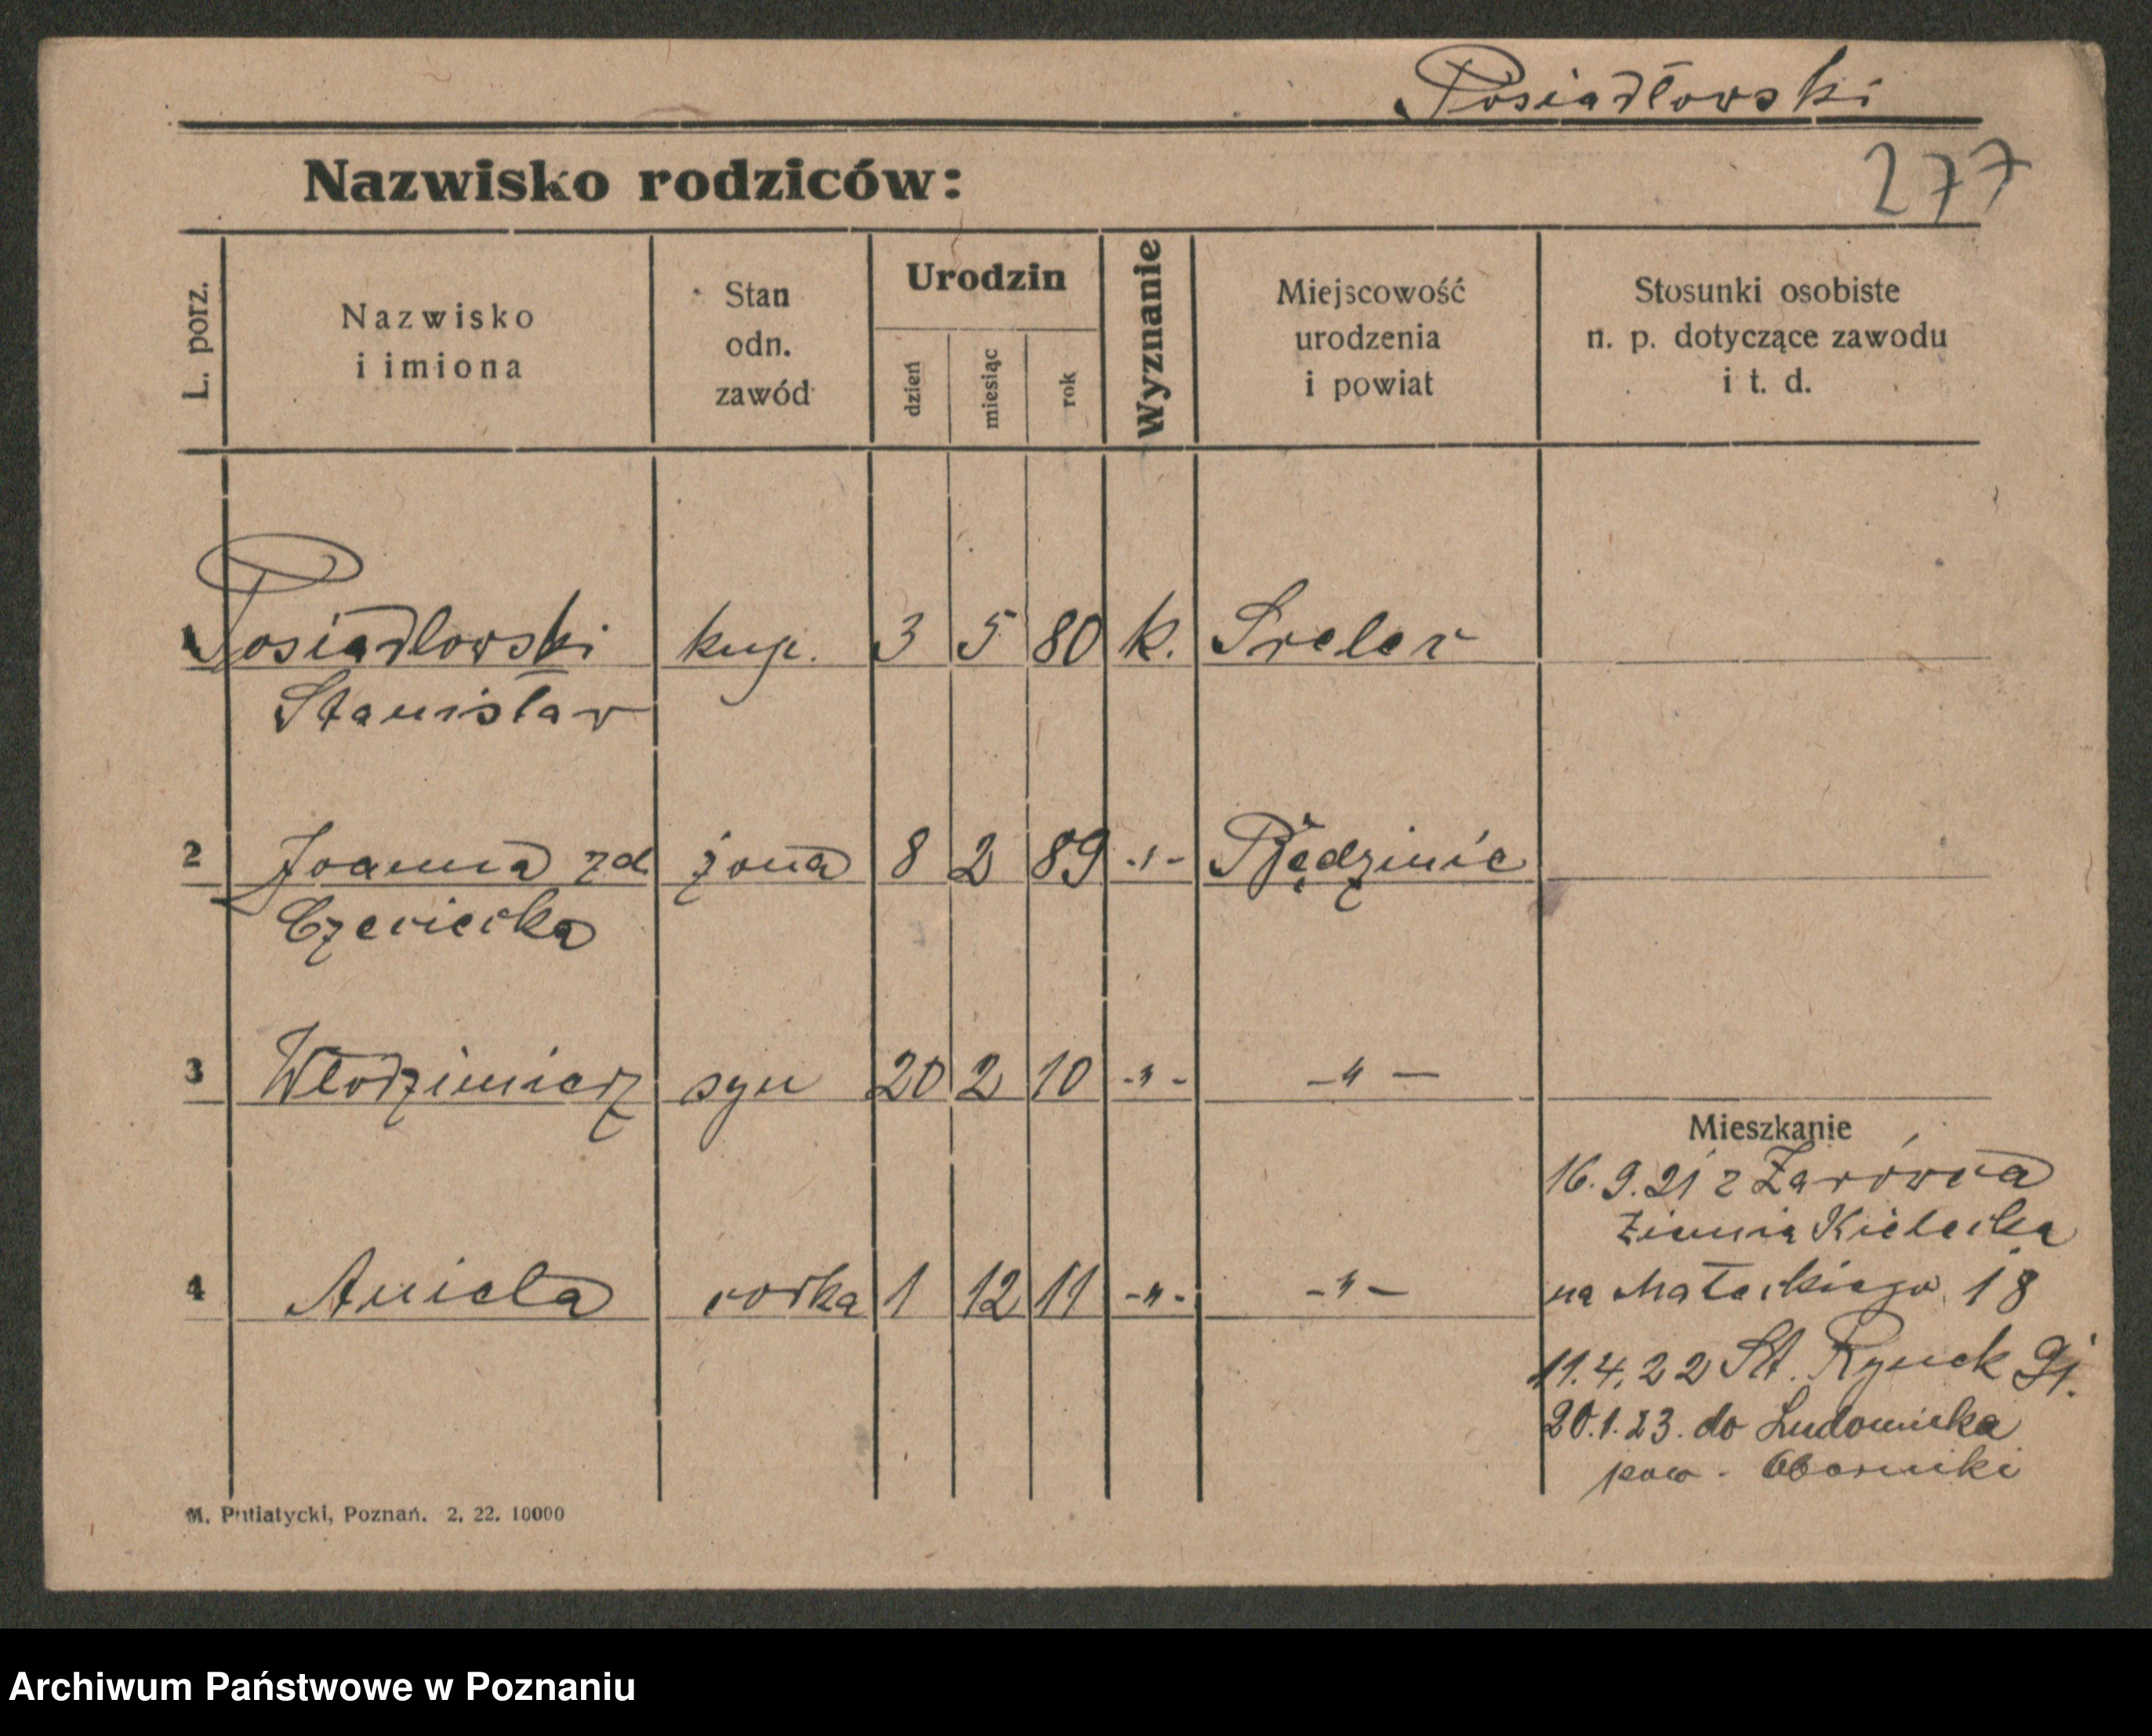 Posiadłowski
277
Nazwisko rodziców:
L. porz.
Nazwisko
i imiona
Stan
odn.
zawód
Urodzin
dzień
miesiąc
rok
Wyznanie
Miejscowość
urodzenia
i powiat
Stosunki osobiste
n. p. dotyczące zawodu
i t. d.
1 Posiadłowski kup. 3 5 80 k.
Stanisław
2 Joanna zd żona 8 2 89 -"-
3 Włodzimierz syn 20 2 10 -"- -"-
Mieszkanie
16.9.21 z
Ziemia Kielecka
4 Aniela corka 1 12 11 -"- -"-
na Małeckiego 18
11.4.22 St. Rynek
20.1.23. do Ludomicka
pow. Oborniki
M. Putiatycki, Poznań. 2. 22. 10000
Archiwum Państwowe w Poznaniu